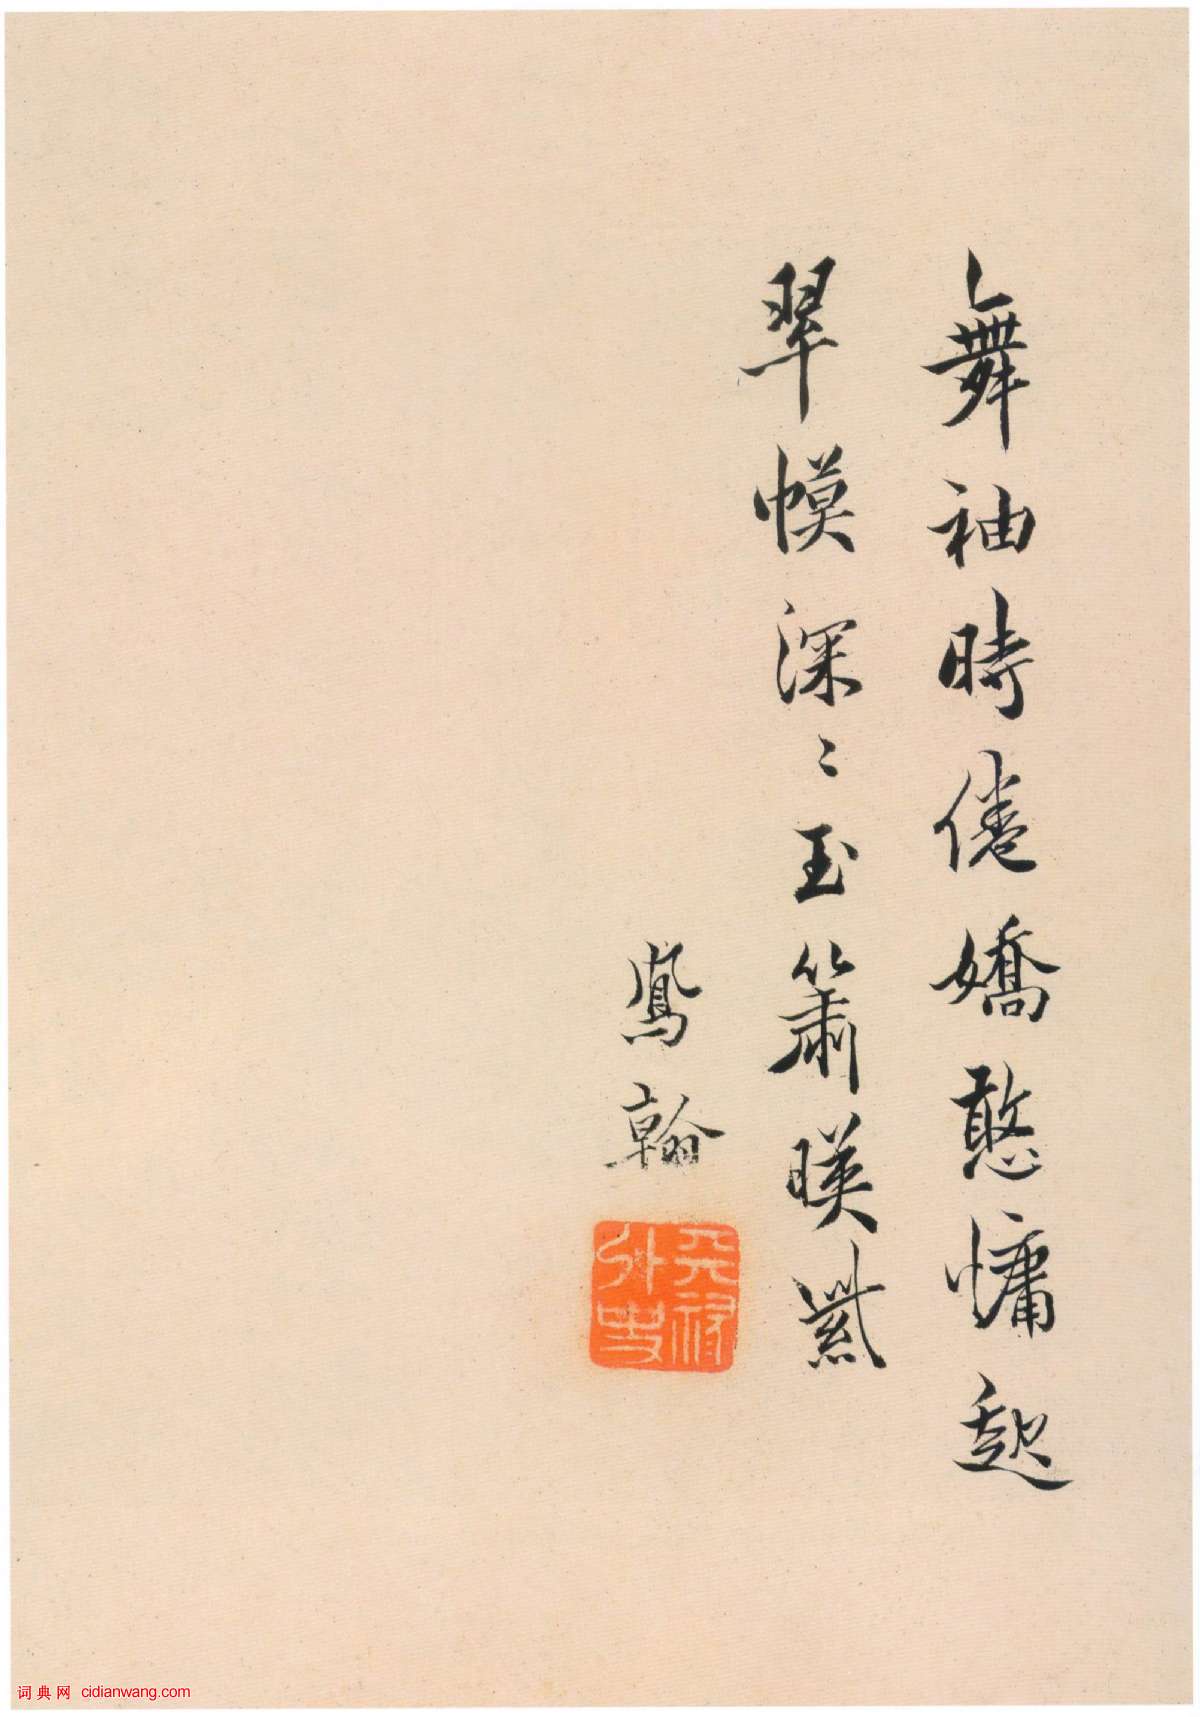 舞袖時倦嬌憨慵起
翠幙深〻玉簫暎紫
鳳翰
外史
词典网 cidianwang.com